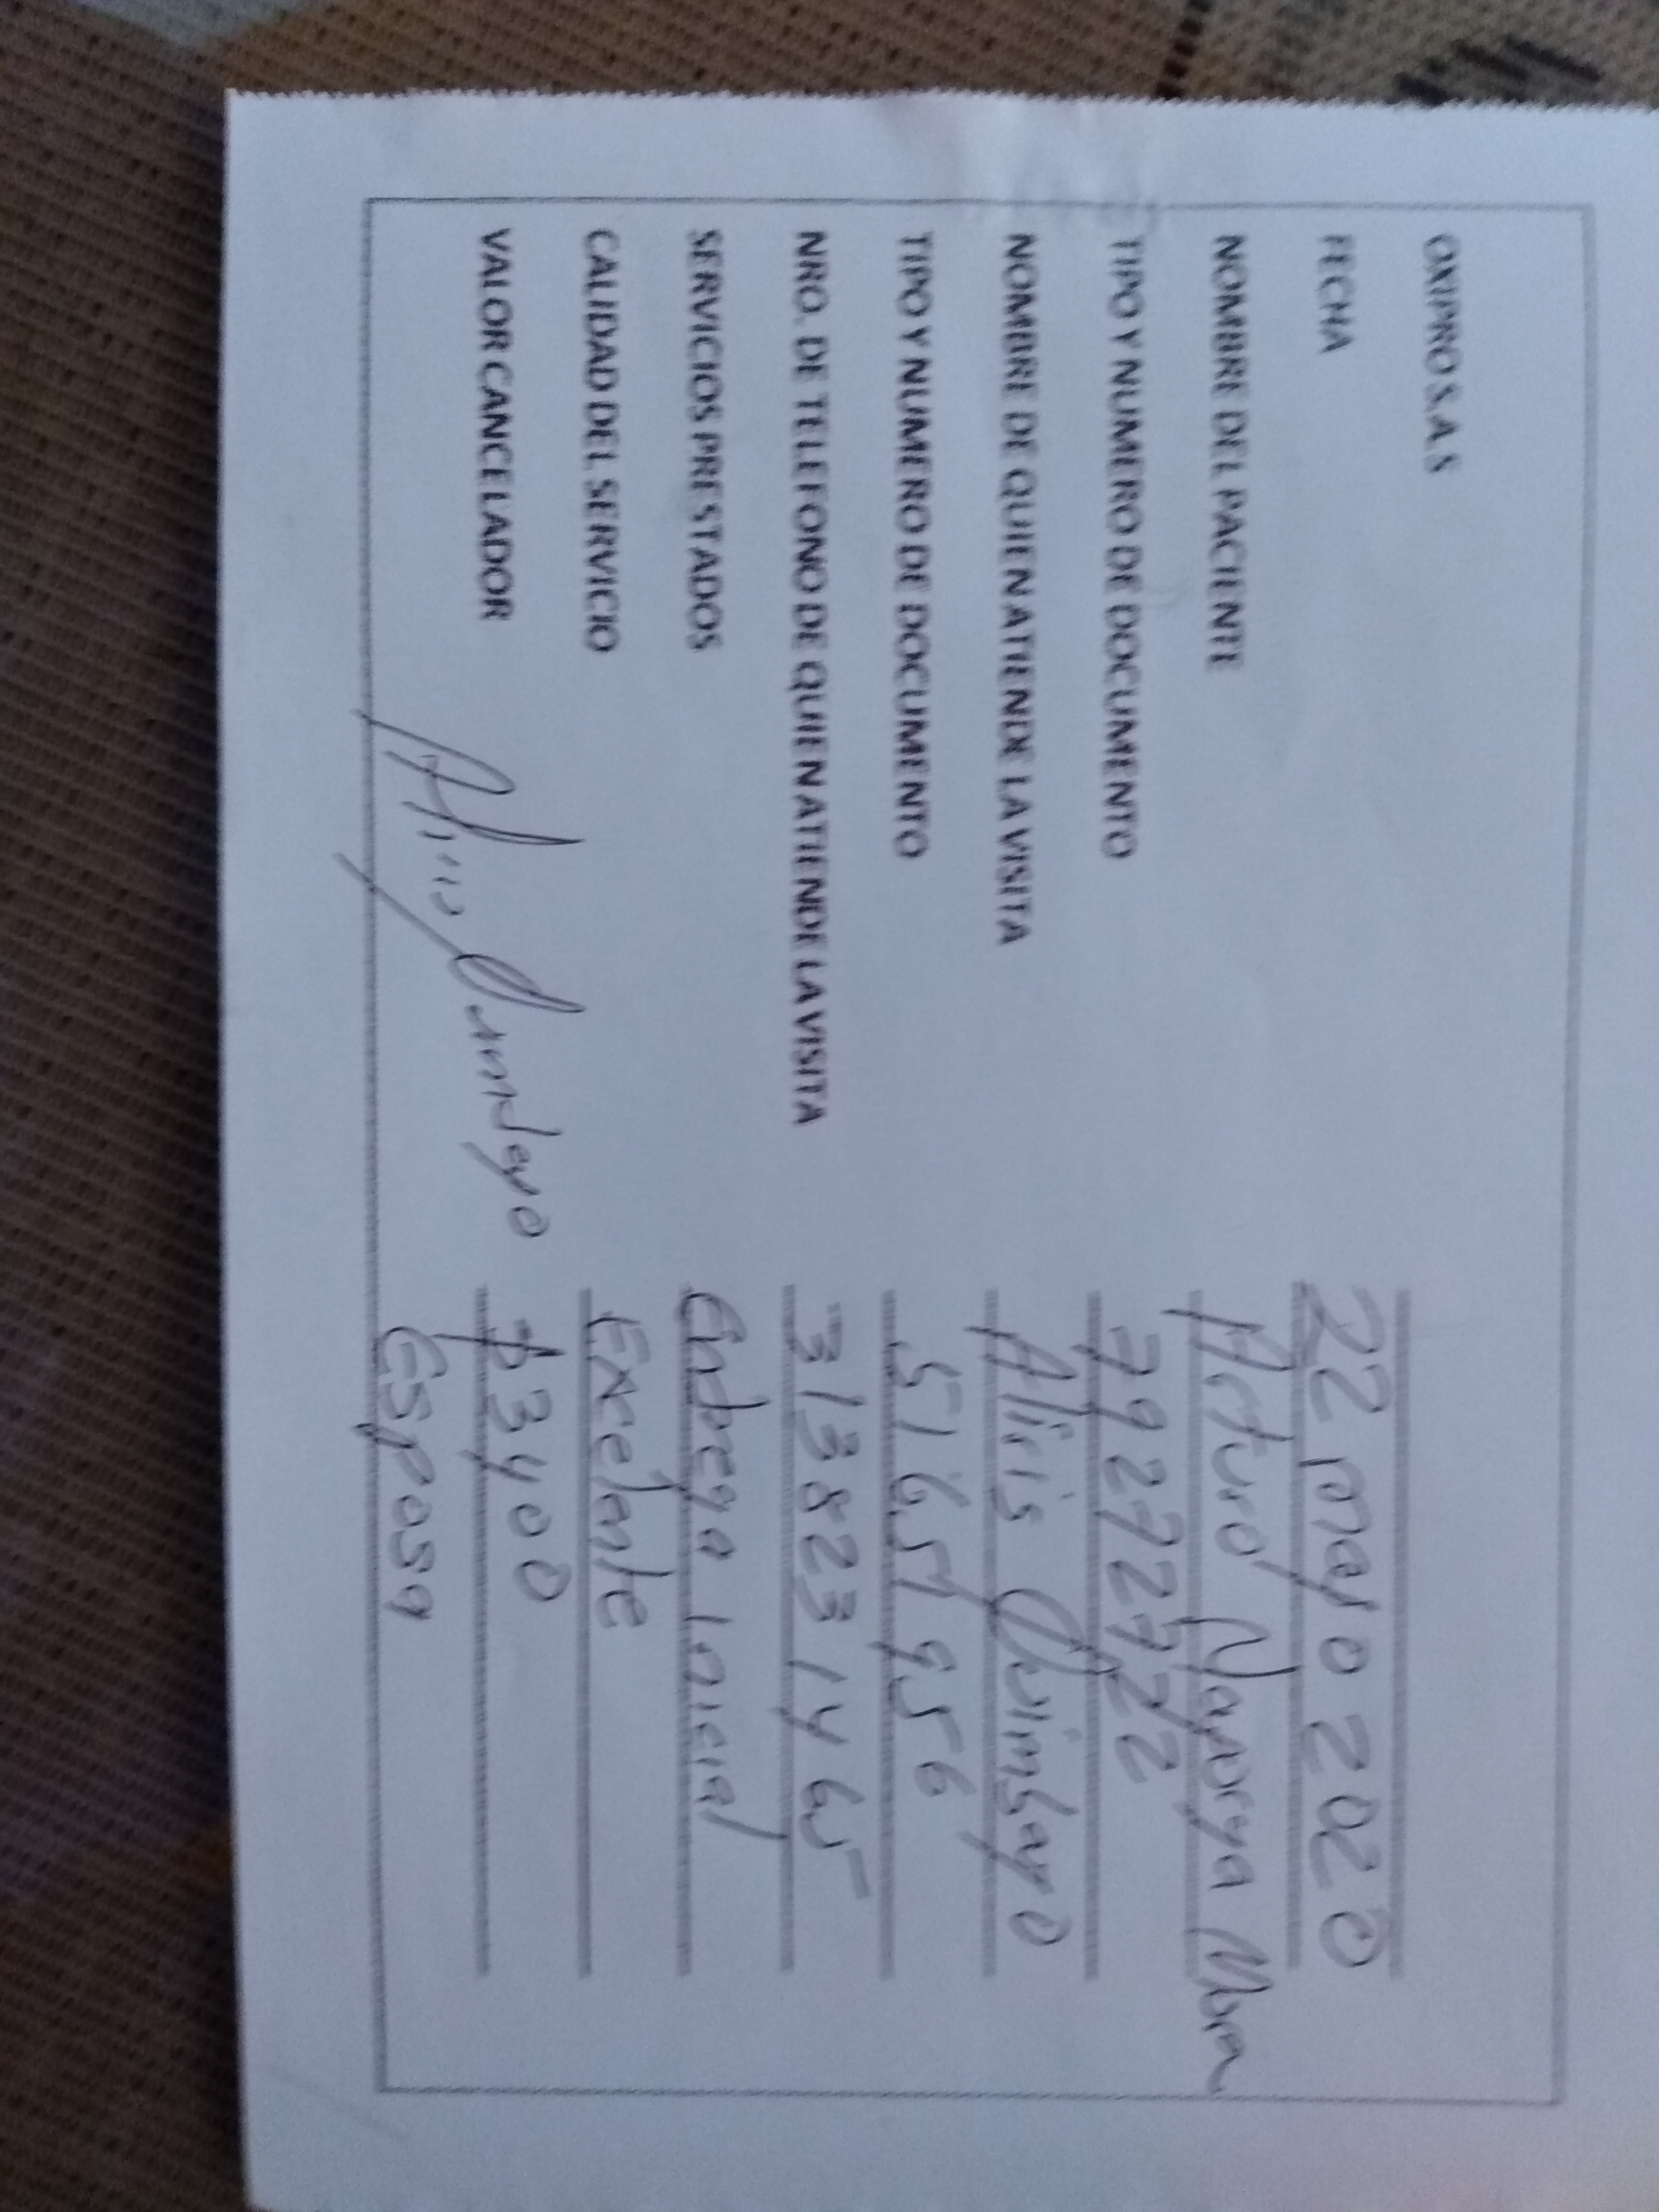 OXIPRO S.A.S
FECHA 22 mayo 2020
NOMBRE DEL PACIENTE Arturo Nayorga Mora
TIPO Y NUMERO DE DOCUMENTO 79272722
NOMBRE DE QUIEN ATIENDE LA VISITA Aliris Quimbayo
TIPO Y NUMERO DE DOCUMENTO 51651956
NRO. DE TELEFONO DE QUIEN ATIENDE LA VISITA 3138231465
SERVICIOS PRESTADOS Entrega Inicial
CALIDAD DEL SERVICIO Excelante
VALOR CANCELADOR $3400
Esposa